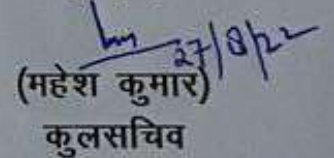 27/8/22
(महेश कुमार)
कुलसचिव